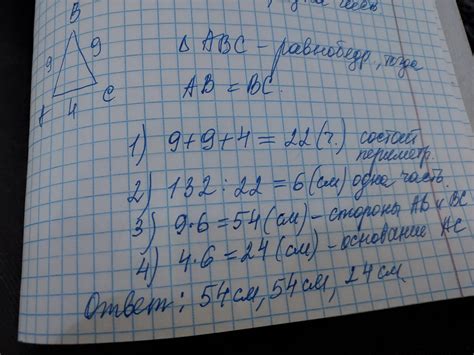 B
9
9
4
C
Δ ABC - равнобедр, тогда
AB = BC.
1) 9+9+4 = 22 (ч.) состоит
периметр.
2) 132 : 22 = 6 (см) одна часть.
3) 9·6 = 54 (см) - стороны AB и BC
4) 4·6 = 24 (см) - основание AC
Ответ: 54 см, 54 см, 24 см.